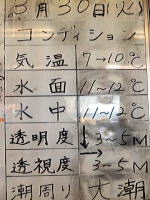 3月30日(火)
コンディション
気温 7→10℃
水面 11~12℃
水中 11~12℃
透明度 ↓3~5M
透視度 3~5M
潮周り 大潮